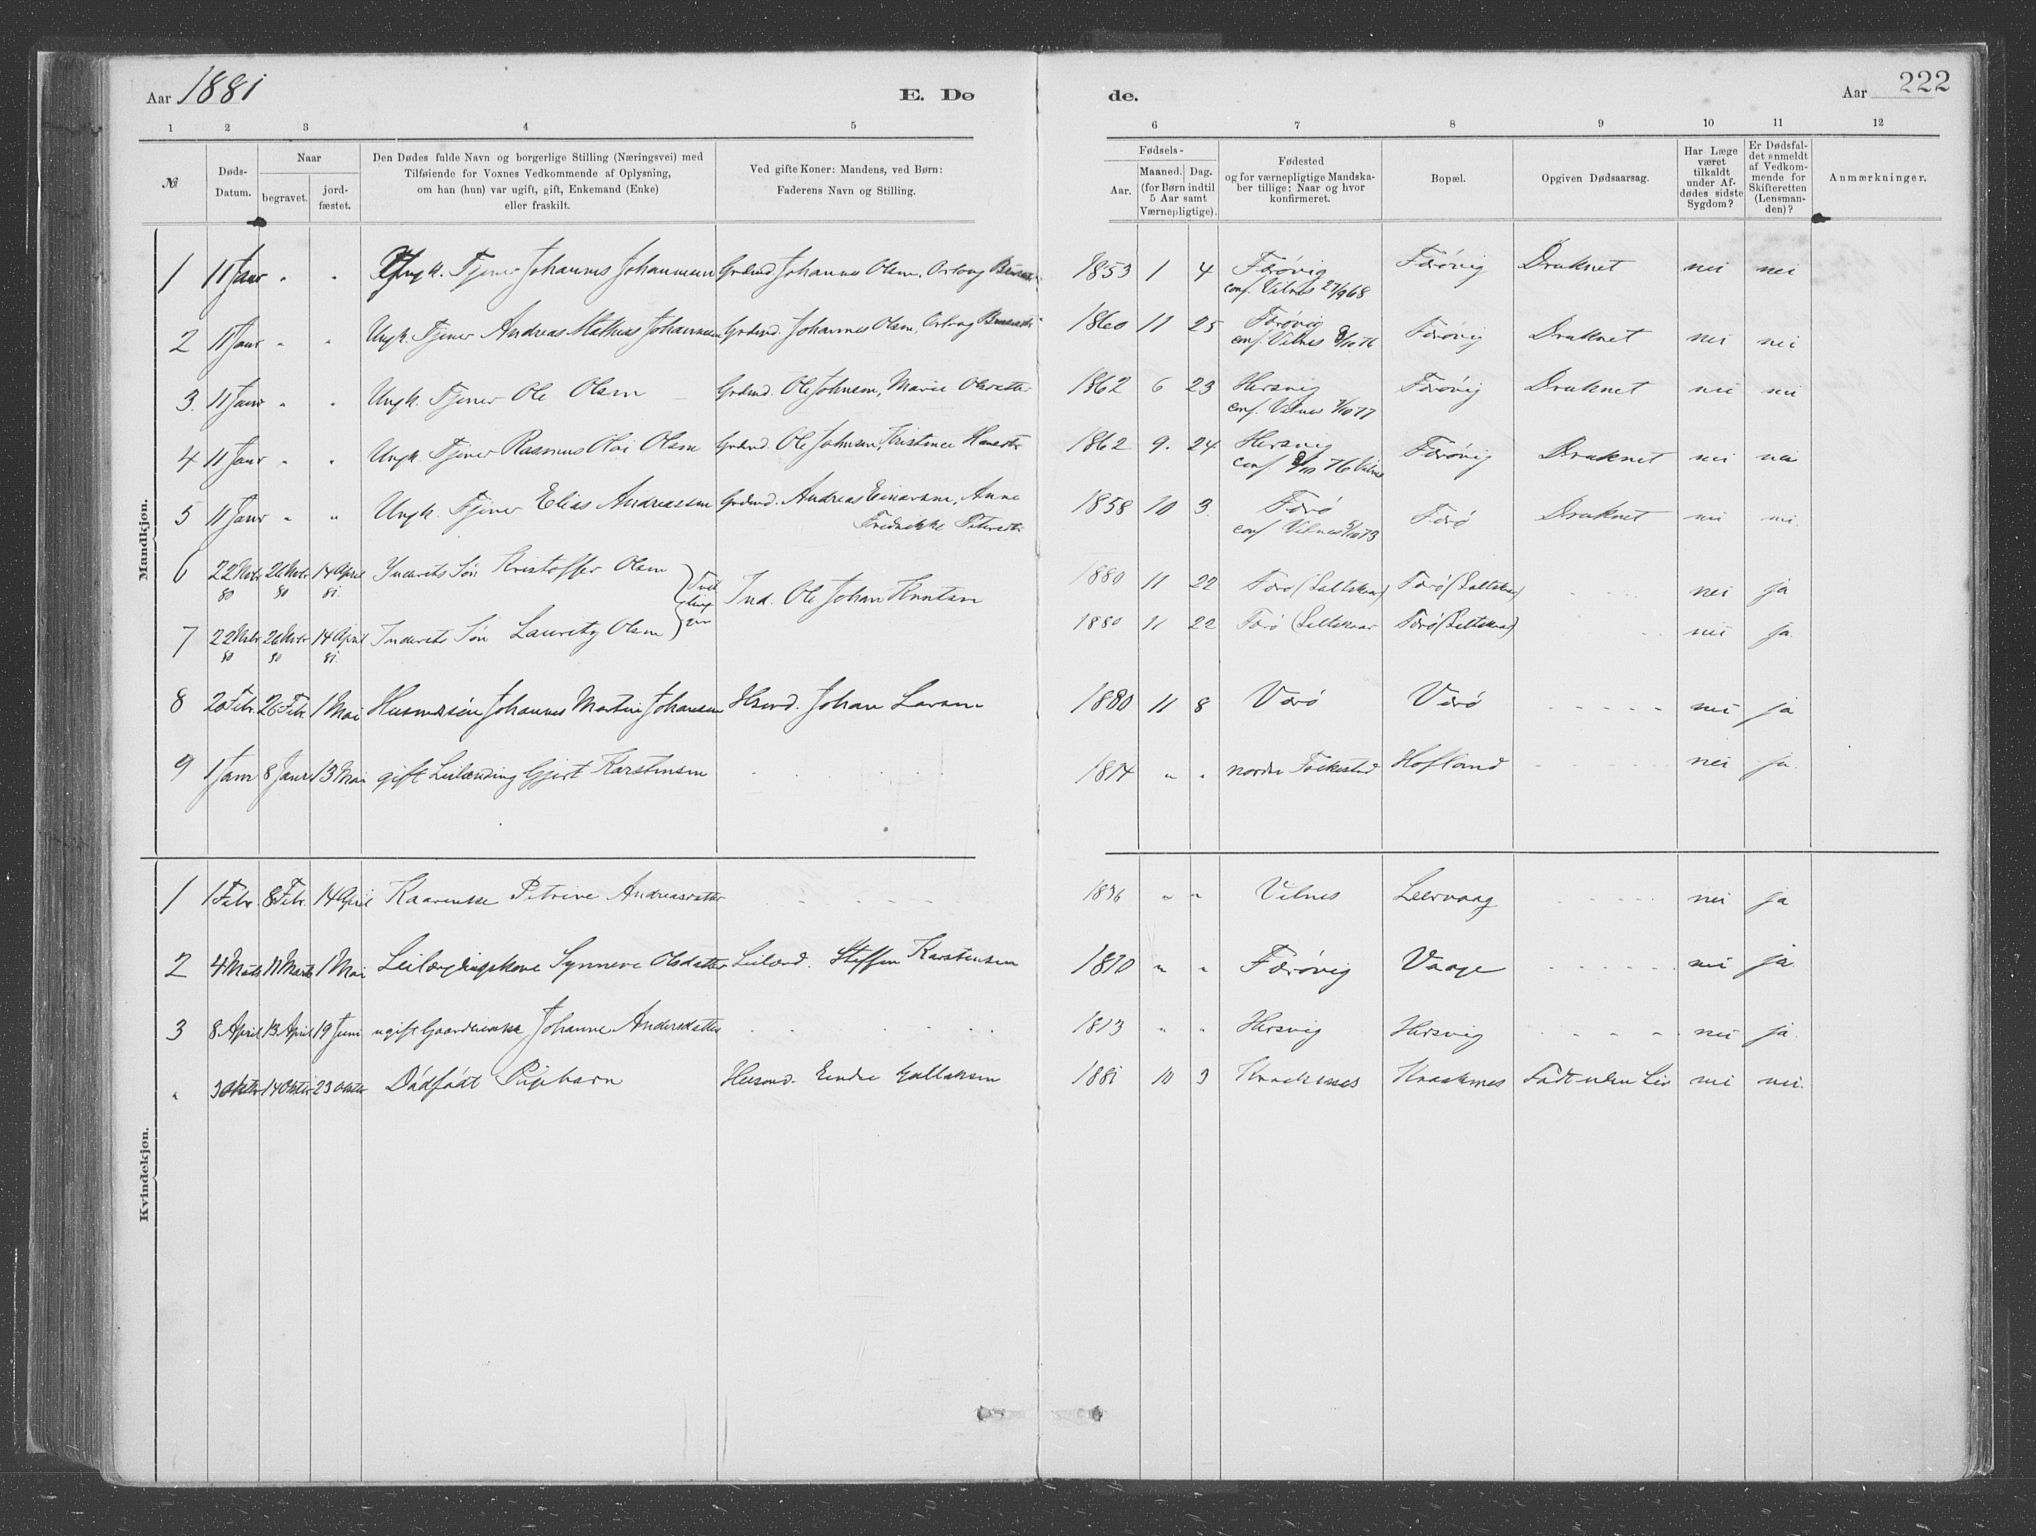 Aar 1881
E. Dø
de.
Aar
222
1 2 3 4 5 6 7 8 9 10 11 12
№
Døds-Datum.
Naar
begravet.
jord-fæstet.
Den Dødes fulde Navn og borgerlige Stilling (Næringsvei) med
Tilføiende for Voxnes Vedkommende af Oplysning,
om han (hun) var ugift, gift, Enkemand (Enke)
eller fraskilt.
Ved gifte Koner: Mandens, ved Børn:
Faderens Navn og Stilling.
Fødsels-
Aar.
Maaned. Dag.
(for Børn indtil
5 Aar samt
Værnepligtige).
Fødested
og for værnepligtige Mandska-
ber tillige: Naar og hvor
konfirmeret.
Bopæl.
Opgiven Dødsaarsag.
Har Læge
været
tilkaldt
under Af-
dødes sidste
Sygdom?
Er Dødsfal-
det anmeldt
af Vedkom-
mende for
Skifteretten
(Lensman-
den)?
Anmærkninger.
Mandkjøn.
1 11 Janr " " Ungk. Tjener Johannes Johannesen Grdmd. Johannes Olsen, 1853 1 4 Færøvig Færøvig Druknet nei nei
conf. Vilnes 27/9 68
2 11 Janr " " Ungk. Tjener Andreas Mathias Johannesen Grdmd. Johannes Olsen, 1860 11 25 Færøvig Færøvig Druknet nei nei
conf. Vilnes 8/10 76
3. 11 Janr " " Ungk. Tjener Ole Olsen Grdmd. Ole Johnsen, Marie Olsdatter 1862 6 23 Hersvig Færøvig Druknet nei nei
conf. Vilnes 7/10 77
4 11 Janr " " Ungk. Tjener Rasmus Olai Olsen Grdmd. Ole Johnsen, Kristence Hansdtr 1862 9. 24 Hersvig Færøvig Druknet nei nei
conf 8/10 76 Vilnes
5 11 Janr " " Ungk. Tjener Elias Andreassen Grdmd. Andreas Einarsen, Anne 1858 10 3. Færø Færø Druknet nei nei.
Fredrikke Petersdtr conf Vilnes 5/10 73
6 22 Novbr. 80 26 Novbr. 80 14 April 81. Indersts Søn Kristoffer Olsen Tvillinger Ind. Ole Johan Knutsen 1880 11 22 Færø (Saltskaar) Færø (Saltskaar) nei ja
7 22 Novbr. 80 26 Novbr 80 14 April 81. Indersts Søn Lauritz Olsen 1880 11 22 Færø (Saltskaar Færø (Saltskaar) nei ja
8 20 Febr. 26 Febr. 1 Mai Husmdssøn Johannes Martin Johansen Husmd. Johan Larsen 1880 11 8 Værø Værø nei ja
9 1 Janr 8 Janr 13 Mai gift Leilænding Gjert Karstensen 1814 " " nordre Folkestad Hofland nei ja.
Kvindekjøn.
1 1 Febr. 8 Febr. 14 April Kaarenske Petrine Andreasdatter " " Vilnes Leervaag nei ja
2 4 Marts 11 Marts 1 Mai Leilændingskone Synneve Olsdatter Leilænd. Steffen Karstensen 1810 " " Færøvig Vaage nei ja.
3 8 April 13 April 19 Juni ugift Johanne Andersdatter 1813 " " Hersvig Hersvig nei ja.
" 3 Oktbr 14 Oktbr 23 Oktbr Dødfødt Pigebarn Husmd. Endre 1881 10 3 Kraaknes Kraaknes Født uden Liv nei nei.